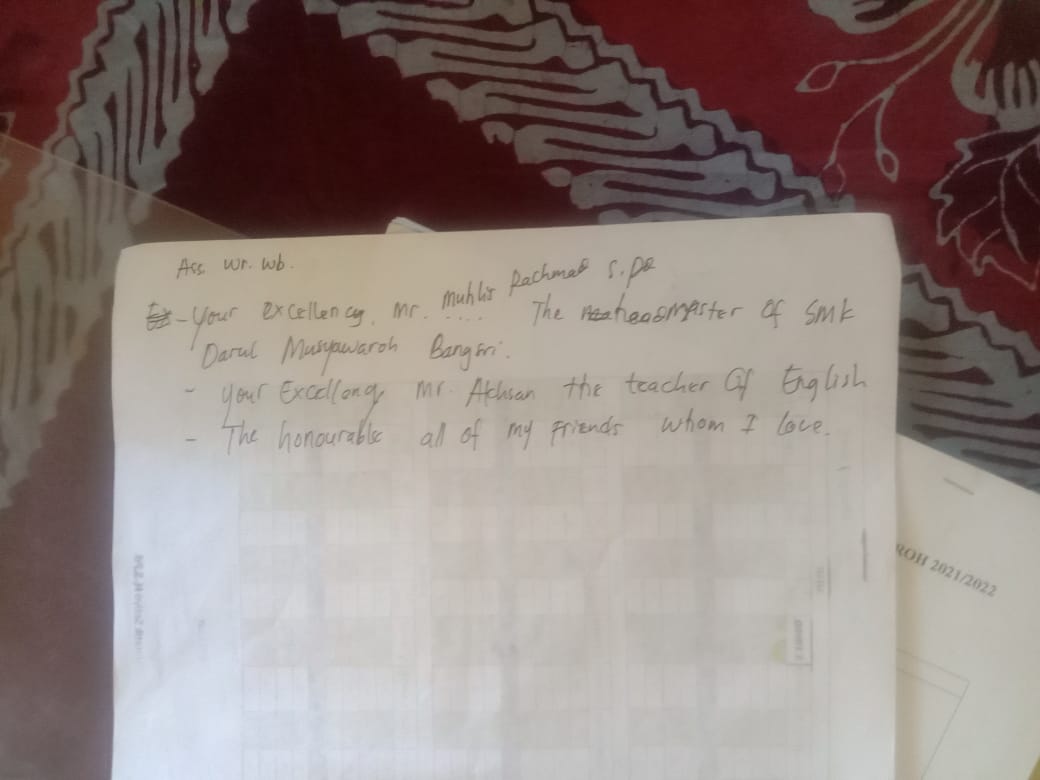 Ass. Wr. Wb.
- Your excellency, Mr. Muhlis Rachmad S.Pd The headmaster of SMK
Darul Musyawaroh Bangsri.
- Your Excellency Mr. Akhsan the teacher Of English
- The honourable all of my friends whom I love.
ROH 2021/2022